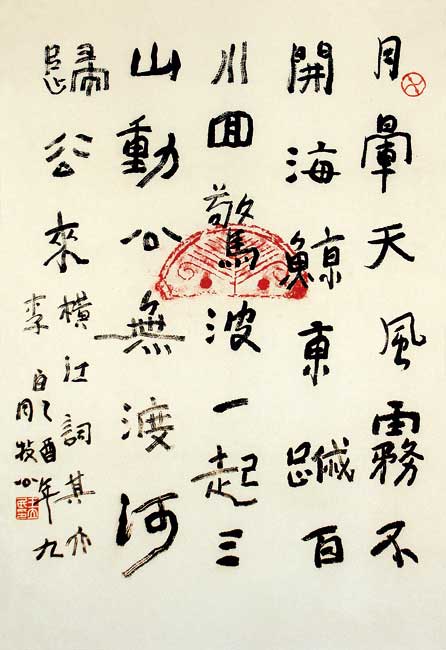 月暈天風霧不
開海鯨東蹙百
川回驚波一起三
山動公無渡河
歸去來
橫江詞其六
李白乙酉年九
月牧公